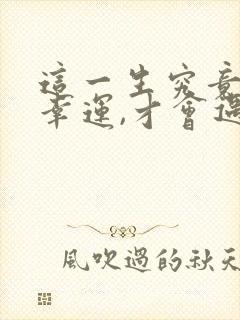 這一生究竟
幸運,才會遇
風吹過的秋天